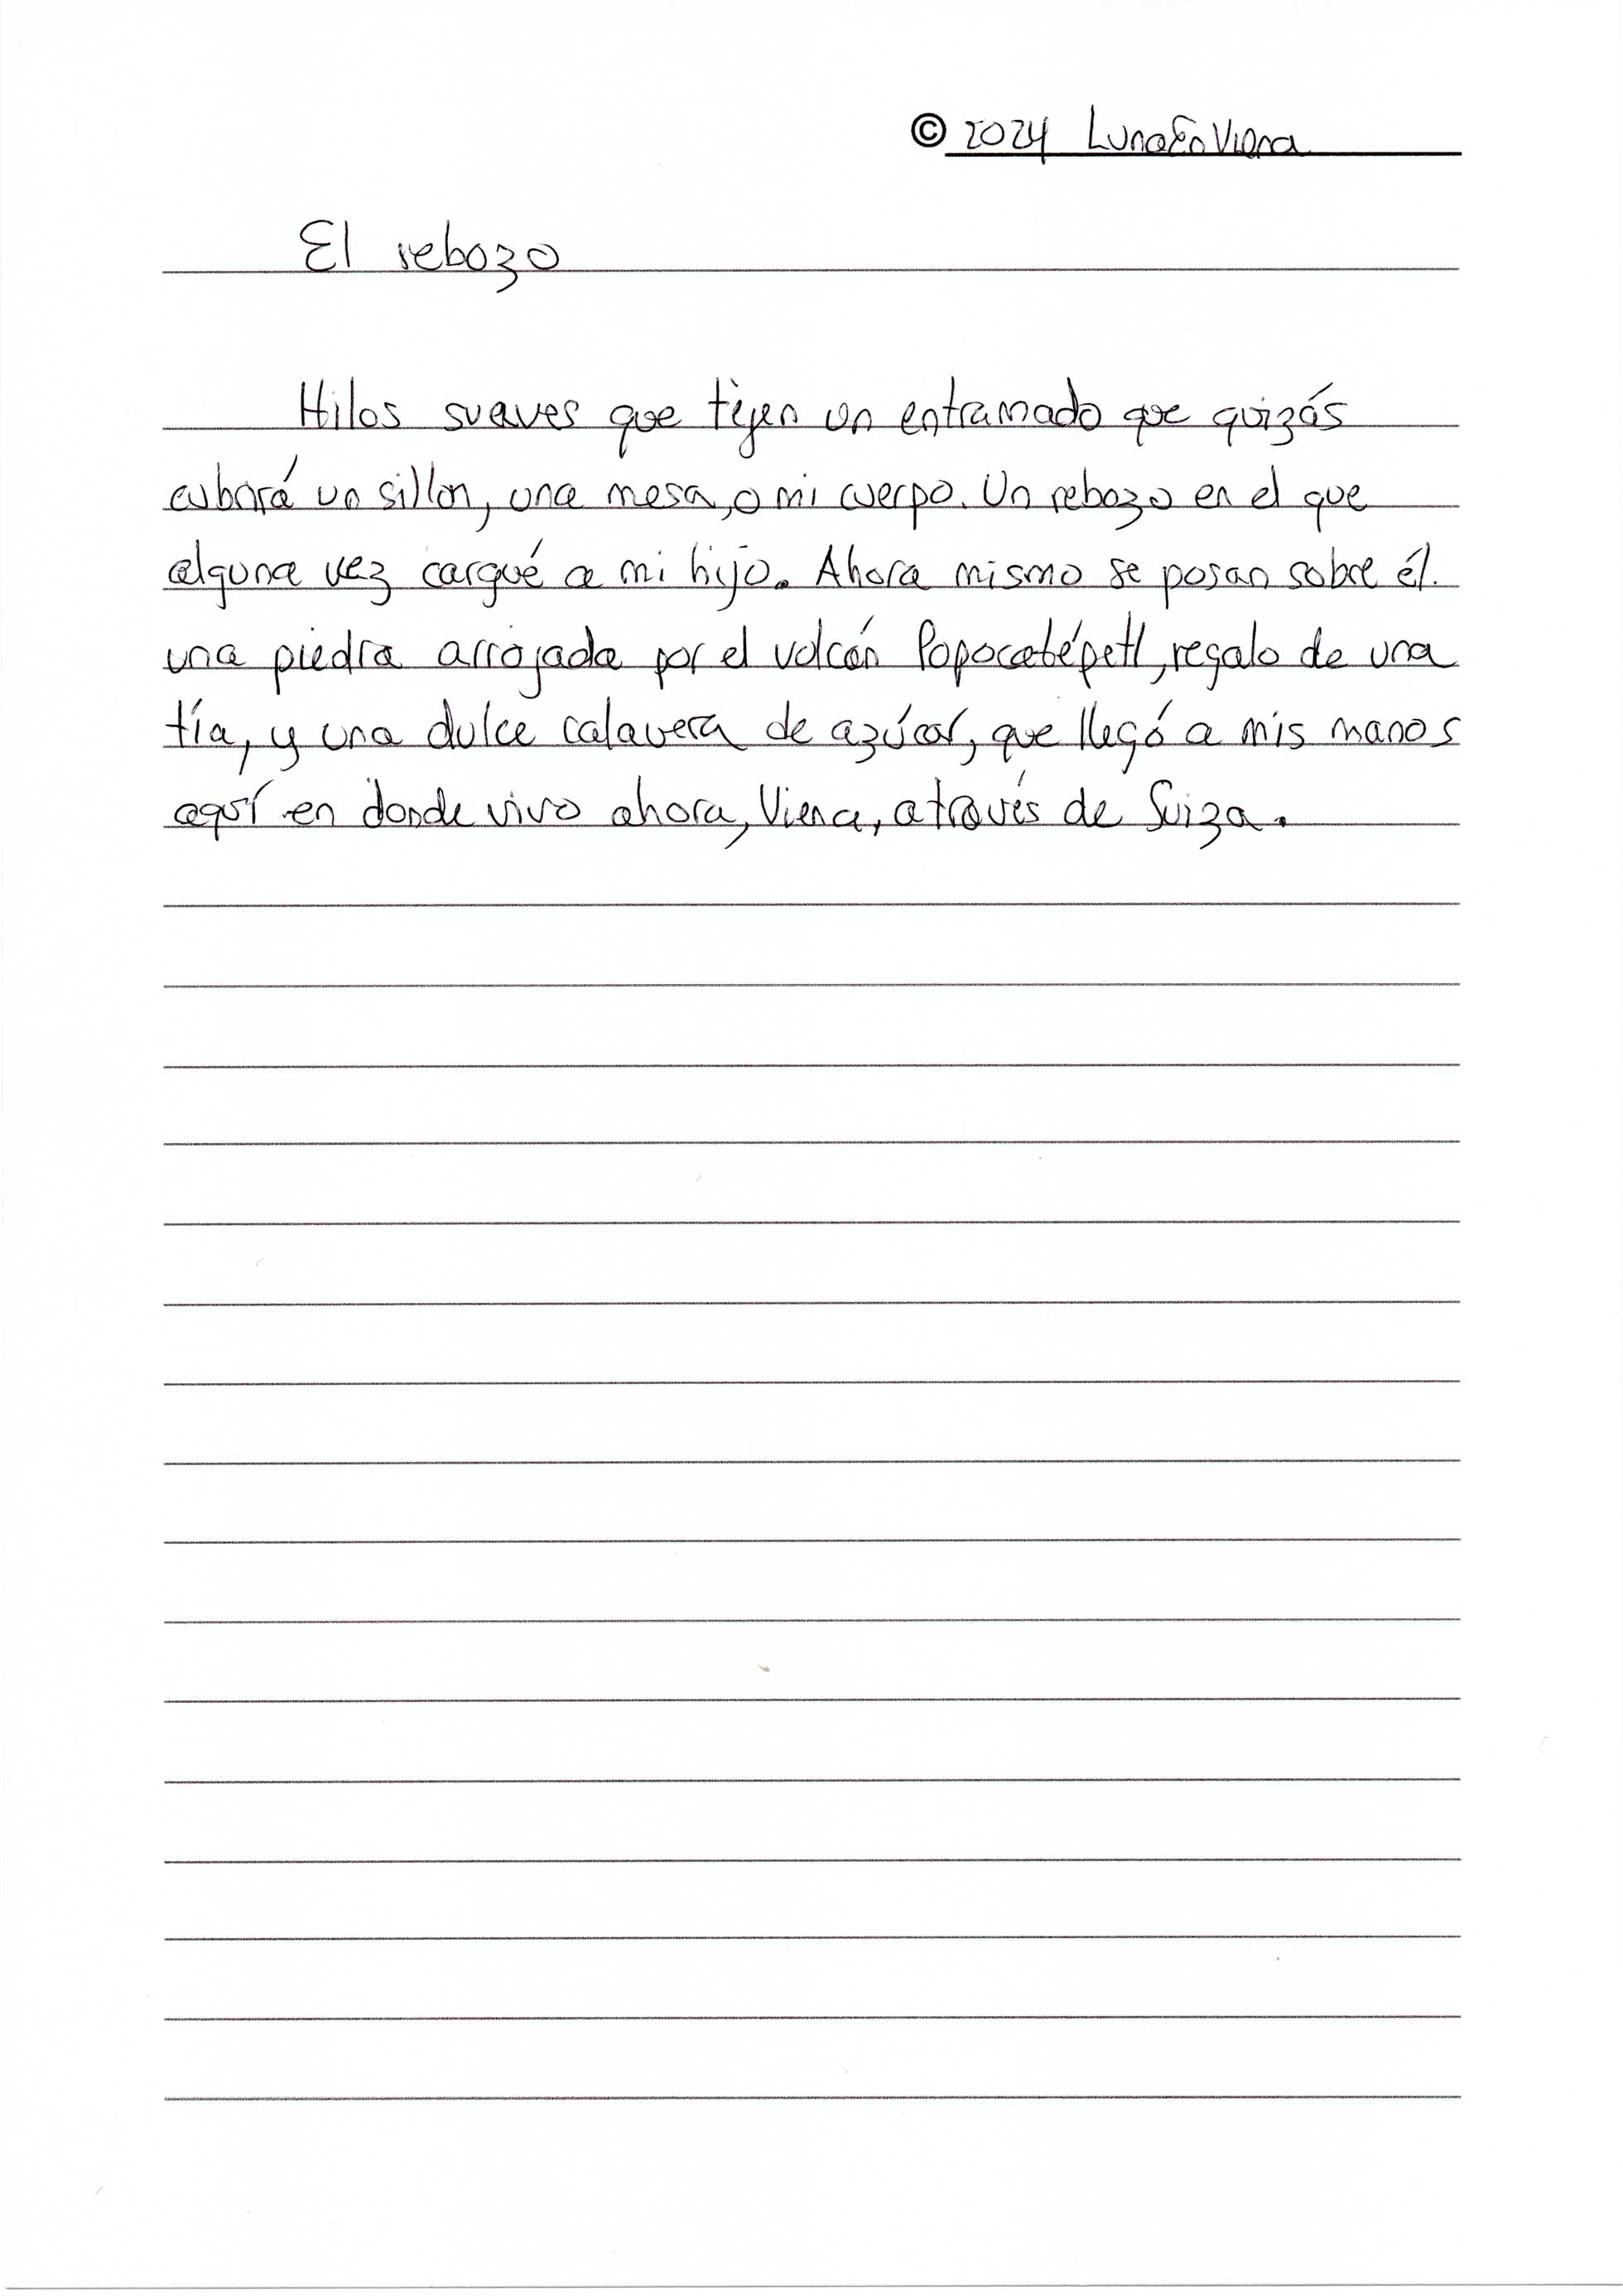 © 2024 LunaEnViena
El rebozo
Hilos suaves que tejen un entramado que quizás
cubrirá un sillon, una mesa, o mi cuerpo. Un rebozo en el que
alguna vez cargué a mi hijo. Ahora mismo se posan sobre él.
una piedra arrojada por el volcán Popocatépetl, regalo de una
tía, y una dulce calavera de azúcar, que llegó a mis manos
aquí en donde vivo ahora, Viena, a través de Suiza.